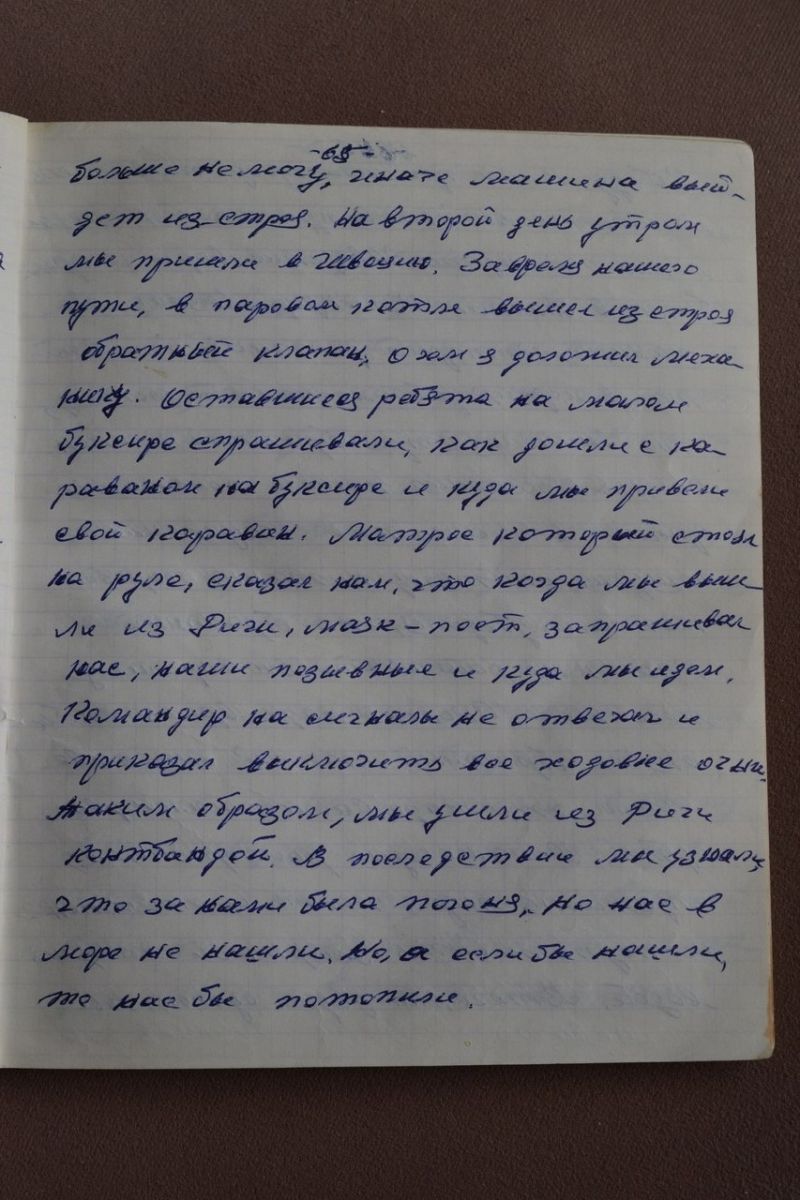 -69-
больше не могу, иначе машина вый-
дет из строя. На второй день утром
мы пришли в Швецию. За время нашего
пути, в паровом котле вышел из строя
обратный клапан, о чем я доложил меха-
нику. Оставшиеся ребята на малом
буксире спрашивали, как дошли с ка-
раваном на буксире и куда мы привели
свой караван. Матрос который стоял
на руле, сказал нам, что когда мы выш-
ли из Риги, маяк-пост, запрашивал
нас, наши позывные и куда мы идем.
Командир на сигналы не отвечал и
приказал выключить все ходовые огни.
Таким образом, мы ушли из Риги
контбандой. В последствие мы узнали,
что за нами была погоня, но нас в
море не нашли. Но, а если бы нашли,
то нас бы потопили.